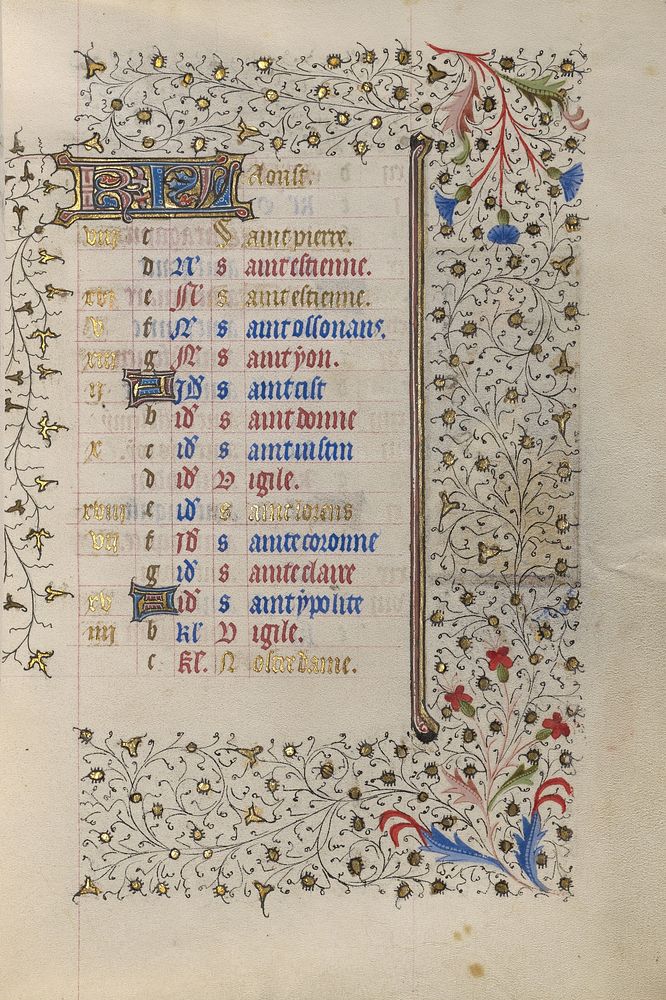 KL Aoust.
viii c S aint pierre.
d N s aint estienne.
xvi e N s aint estienne.
v f N s aint ossonans.
xiii g N s aint yon.
ii A Id s aint sist
b id s aint donne
x c id s aint iustin
d id V igile.
xviii e id s aint lorens
vii f Id s ainte coronne
g id s ainte claire
xv A id s aint ypolite
iiii b kl V igile.
c kl. N ostre dame.